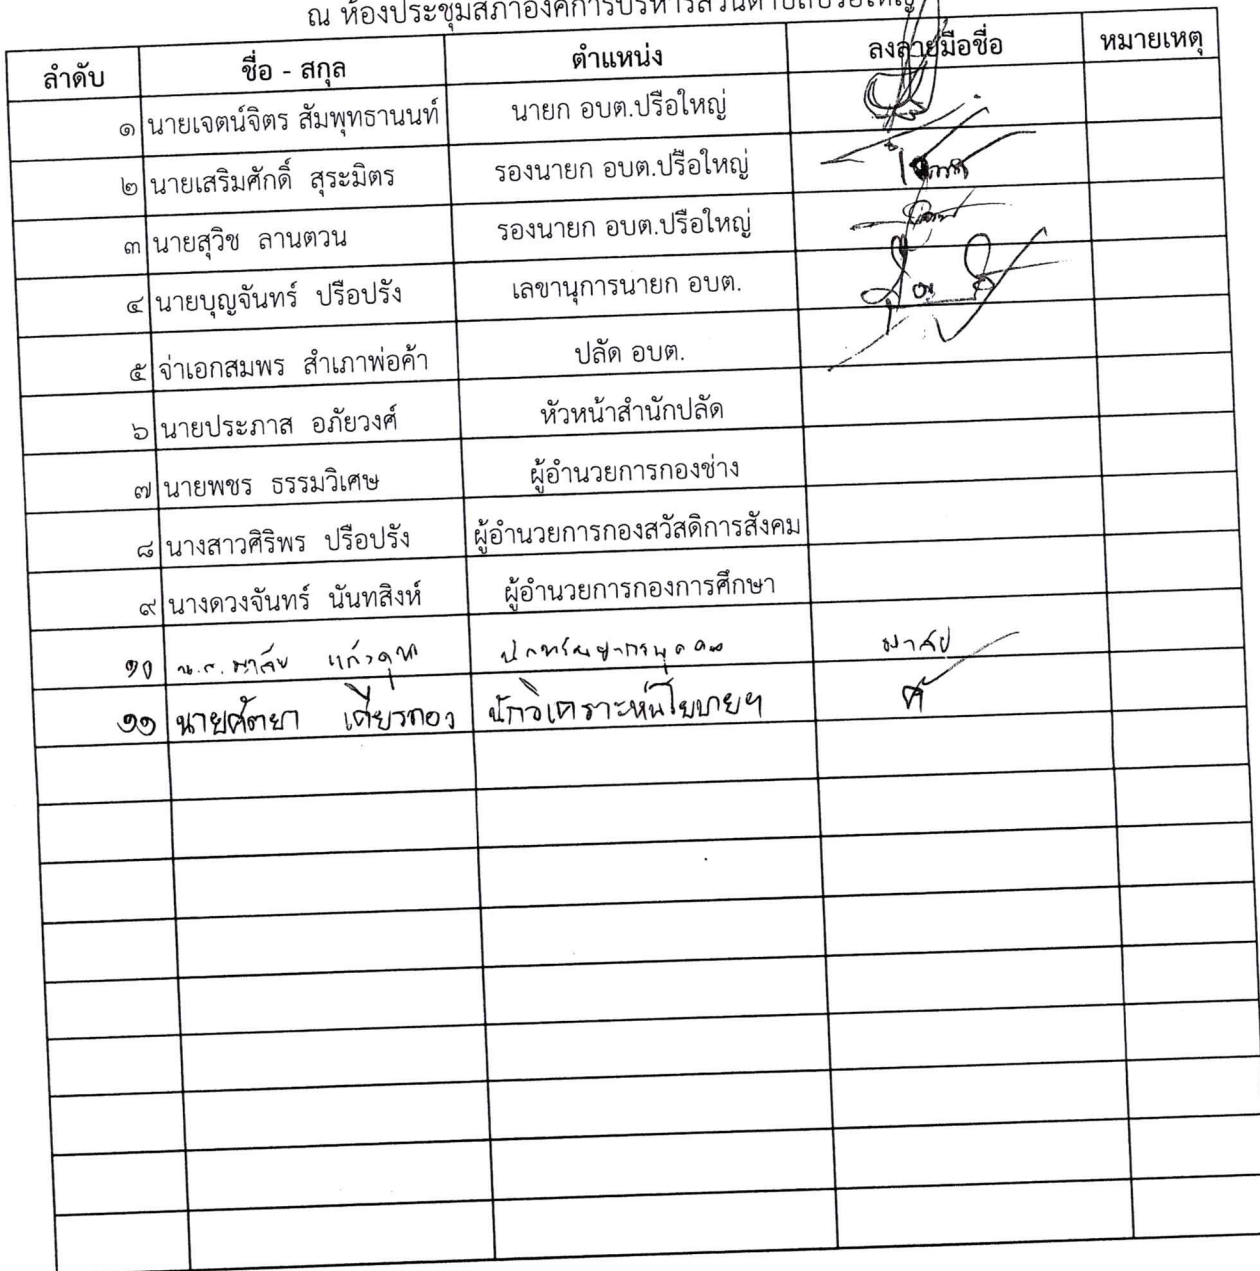 ณ ห้องประชุมสภาองค์การบริหารส่วนตำบลปรือใหญ่
ลำดับ ชื่อ - สกุล ตำแหน่ง ลงลายมือชื่อ หมายเหตุ
๑ นายเจตน์จิตร สัมพุทธานนท์ นายก อบต.ปรือใหญ่
๒ นายเสริมศักดิ์ สุระมิตร รองนายก อบต.ปรือใหญ่
๓ นายสุวิช ลานตวน รองนายก อบต.ปรือใหญ่
๔ นายบุญจันทร์ ปรือปรัง เลขานุการนายก อบต.
๕ จ่าเอกสมพร สำเภาพ่อค้า ปลัด อบต.
๖ นายประภาส อภัยวงศ์ หัวหน้าสำนักปลัด
๗ นายพชร ธรรมวิเศษ ผู้อำนวยการกองช่าง
๘ นางสาวศิริพร ปรือปรัง ผู้อำนวยการกองสวัสดิการสังคม
๙ นางดวงจันทร์ นันทสิงห์ ผู้อำนวยการกองการศึกษา
๑๐ น.ส. มาลัย นักทรัพยากรบุคคล มาลัย
๑๑ นายศัตยา นักวิเคราะห์นโยบายฯ